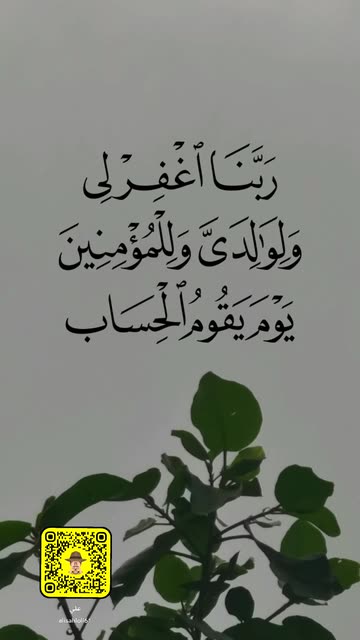 رَبَّنَا ٱغْفِرْ لِى
وَلِوَٰلِدَىَّ وَلِلْمُؤْمِنِينَ
يَوْمَ يَقُومُ ٱلْحِسَابُ
علي